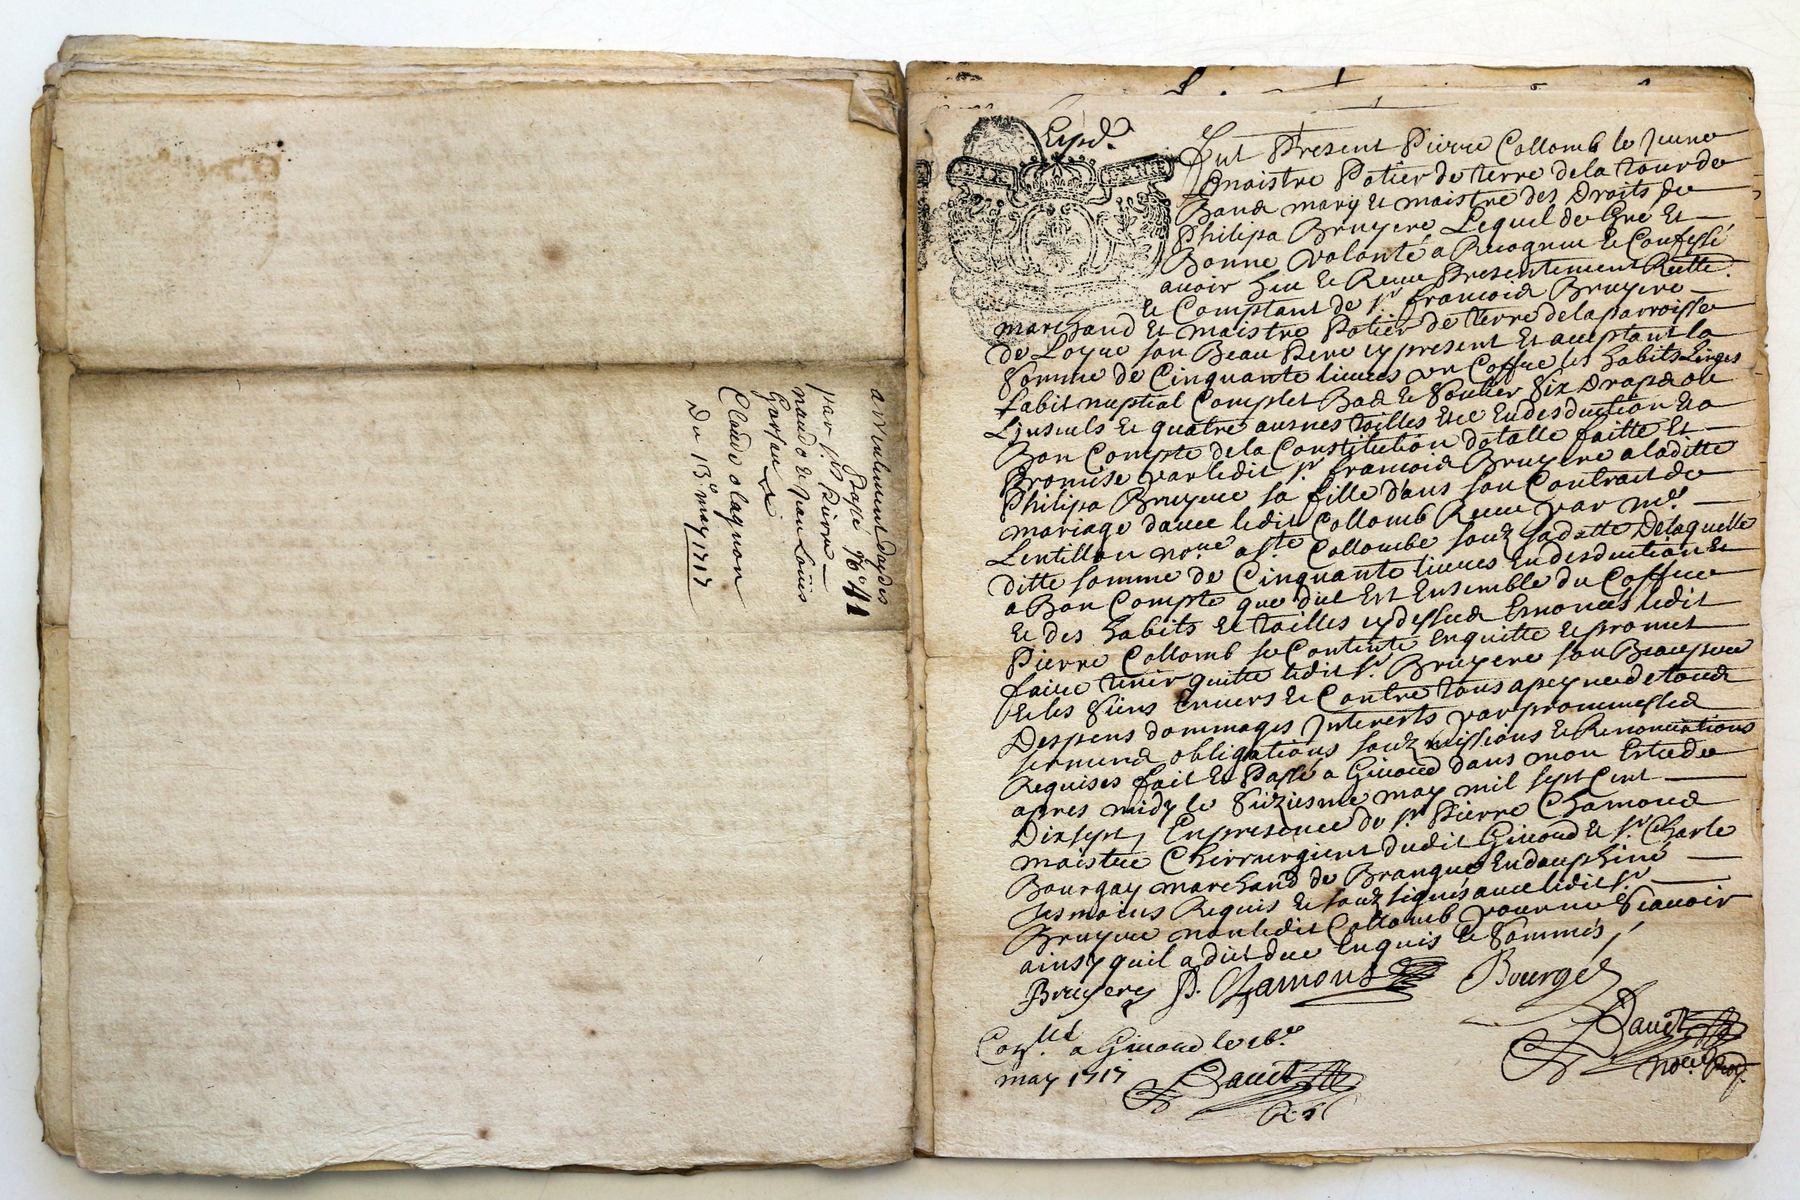 arrentement daydes
passé N° 41
par s.rs Pierre
naud et Jean Louis
Garson
Claude olagnon
Du 13e may 1717
Expd.
SIX DENIERS
Fut Present Pierre Collomb le Jeune
maistre Potier de terre de la tour de
mary et maistre des Droits de
Philipa Bruyere Lequel de Gre Et
Bonne volonté a Recogneu et Confessé
avoir heu et Receu Presentement Reelle.
et Comptant de sr francois Bruyere
marchand Et maistre Potier de terre de la parroisse
de Loyre son Beau Pere icy present Et aceptant la
Somme de Cinquante livres un Coffre les habits Linges
habit nuptial Complet Bas et Soulier Six Draps ou
Linsuls et quatre ausnes toilles Ete En desduction Et a
Bon Compte de la Constitution dotalle faitte Et
Promise par ledit sr francois Bruyere a laditte
Philipa Bruyere sa fille dans son Contrait de
mariage d'avec ledit Collomb Receu par me
Lentillon nore a ste Collombe souz sa datte De laquelle
ditte somme de Cinquante livres En desduction Et
a Bon Compte que dict Est Ensemble du Coffre
et des habits et toilles cy dessus Enoncés ledit
Pierre Collomb se Contente En quitte et promet
faire tenir quitte ledit sr Bruyere son Beau pere
et les Siens Envers et Contre tous a peyne de tous
Despens dommages Interests par promesses
serments obligations souz missions et Renonciations
Requises fait Et Passé a Givord dans mon Estude
apres midy le Seiziesme may mil sept Cent
Dix sept, En presence de sr Pierre Chamond
maistre Chirurgient dudit Givord et sr Charle
Bourgay marchand de Brangue En dauphiné
tesmoins Requis et souz signés avec ledit sr
Bruyere non ledit Collomb pour ne Scavoir
ainsy quil a dict de ce Enquis et Sommés
Bruyere P. Chamont Bourge
Davit
nore Royl.
Conlé a Givord le 26e
may 1717 Davit